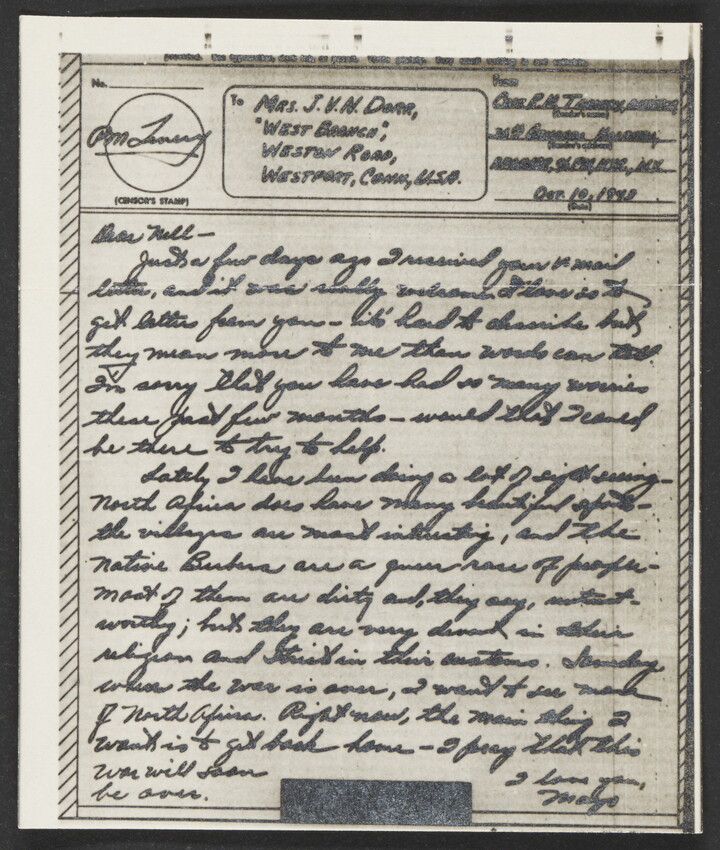 No.
PM Tenney
(CENSOR'S STAMP)
To
Mrs. J. V. N. Dorr,
"West Branch",
Weston Road,
Westport, Conn., U.S.A.
From
(Sender's name)
General Hospital,
(Sender's address)
N.Y.
Oct. 10, 1943
(Date)
Dear Nell —
Just a few days ago I received your V-mail
letter, and it was really welcome. I love so to
get letters from you — it's hard to describe but
they mean more to me than words can tell
I'm sorry that you have had so many worries
these past few months — would that I could
be there to try to help.
Lately I have been doing a lot of sight seeing —
North Africa does have many beautiful spots —
the villages are most interesting, and the
native Berbers are a queer race of people —
most of them are dirty and, they say, untrust-
worthy; but they are very devout in their
religion and strict in their customs. Someday
when the war is over, I want to see more
of North Africa. Right now, the main thing I
want is to get back home — I pray that this
war will soon
be over.
I love you,